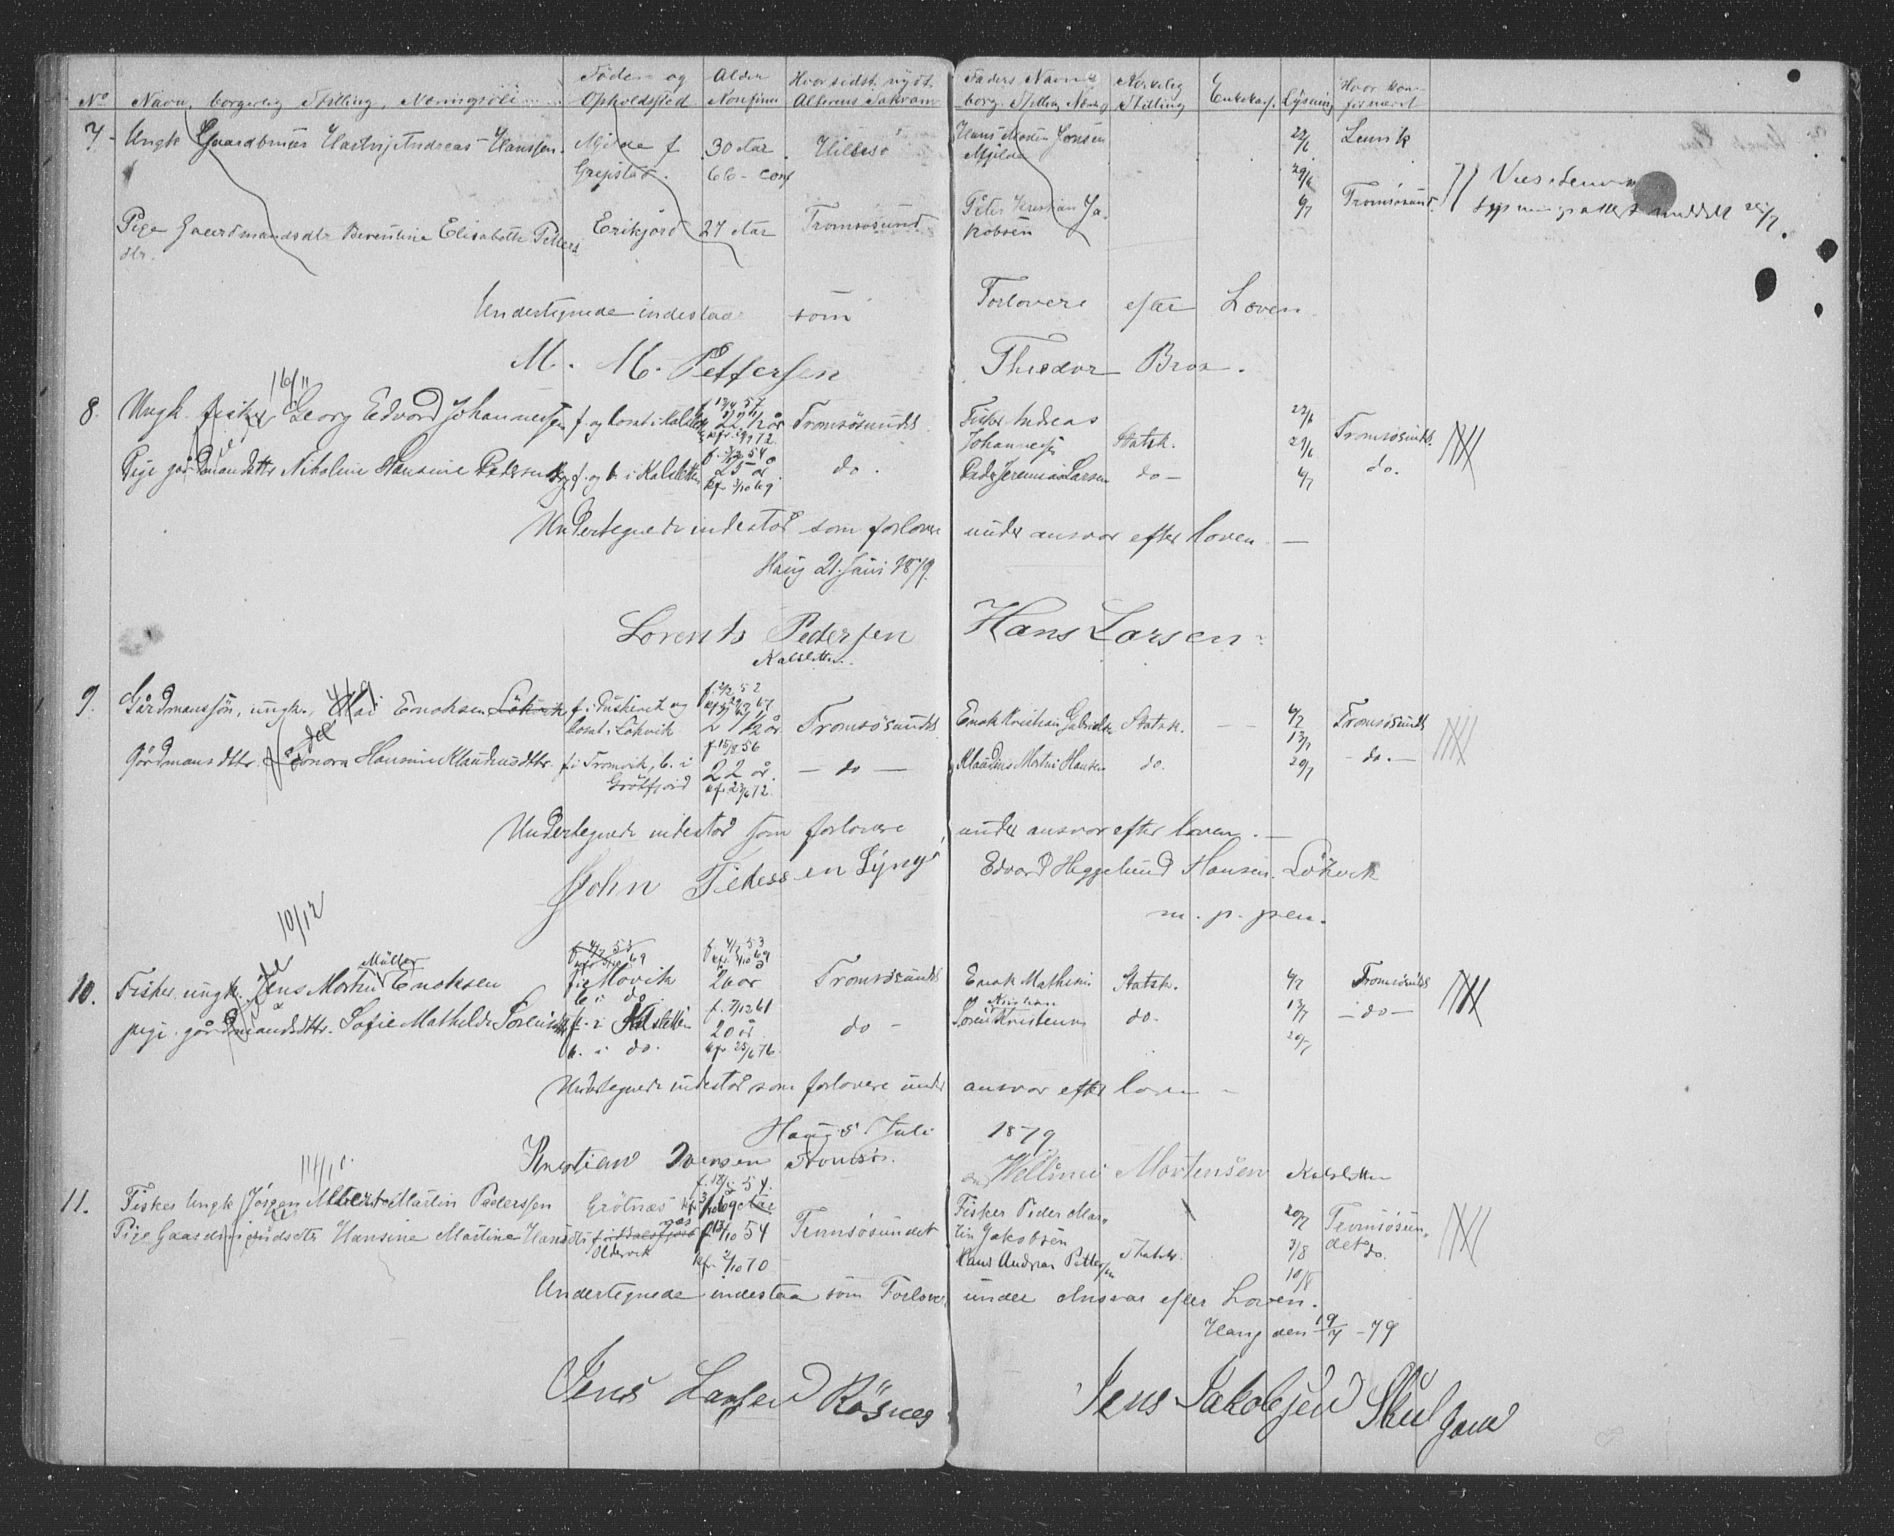 No
Navn, borgerlig Stilling, Næringsvei
Føde- og
Opholdssted
Alder
Konfirm
Hvor sidst nydt
Alterens Sakram
Faders Navn
borg. Stilling Næring
Kirkelig
Stilling
Enkekasse
Lysning
Hvor kon-
firmeret
7
Ungk Gaardbruger Andreas Hanssen
Mjelde f
Grepstad
30 Aar
Hillesø
Hans Jonsen
Mjelde
22/6
29/6
6/7
Lenvik
Tromsøsund
Pige Gaardmandsdtr Berentine Elisabeth Petters
dtr.
Erikjord
27 Aar
Tromsøsund
Peter Kristian Ja-
kobsen
Undertegnede indestaa som Forlovere efter Loven
M. M. Pettersen
Theodor Bros.
16/11
8.
Ungk. fisker Georg Edvard Johannessen
f. og boset i Kalsletten
22 1/2 år
Tromsøsundet
Fisker Andreas
Johannessen
Statsk.
22/6
29/6
6/7
Tromsøsundt.
do.
Pige gårdmandsdtr Nikoline Hansine Pedersen
f. og b. i Kalsletten
25 år
kfr. 3/10 69
do.
Peder Jeremias Larsen
do
Undertegnede indestår som forlovere under ansvar efter loven.
Haug 21 Juni 1879.
Lorents Pedersen
Kalsletten.
Hans Larsen
9.
4/9
Gårdmanssøn, ungk. Enoksen Løkvik
boset i Løkvik
f. 2/2 52
27 1/2 år
Tromsøsundet
Enok Kristian Gabrielsen
Statsk.
6/7
13/7
20/7
Tromsøsundt
do.
gårdmansdtr. Hansine Klaudiusdtr.
f i Tromvik, b. i
Grøtfjord
f. 15/8 56
22 år.
kfr. 23/6 72.
do
Klaudius Martin Hansen
do.
Undertegnede indestår som forlovere under ansvar efter loven.
John Pedersen Lyngø
Edvard Heggelund Hansen Løkvik
m. p. pen.
10/12
10.
Fisker, ungk. Jens Martin Müller Enoksen
f i Movik
b i do.
f. 4/7 53
26 år
Tromsøsundt
Enok Mathisen
Statsk.
6/7
13/7
20/7
Tromsøsundt
do
pige gårdmandsdtr. Sofie Mathilde Sørensdtr
f. i Kalsletten
b. i do.
f. 7/12 61
20 år
kfr 25/6 76.
do
Søren Kristian Kristensen
do.
Undertegnede indestår som forlovere under ansvar efter loven
Haug 5 Juli 1879
Kristian Iversen Tromsø.
Mortensen Kalsletten
11.
Fisker Ungk Jørgen Martin Pederssen
Grøtnæs
Tromsøsundet
Fisker Peder Mar-
tin Jakobsen
20/7
3/8
10/8
Tromsøsun-
det
do.
Pige Gaardmandsdtr Hansine Martine Hansdtr
Oldervik
13/10 54
kfr. 2/10 70
Hans Andreas Pettersen
Statsk.
Undertegnede indestaa som Forlovere under Ansvar efter Loven.
Haug den 19/7 -79
Jens Larsen Røsnes
Jens Jakobsen Skulgam